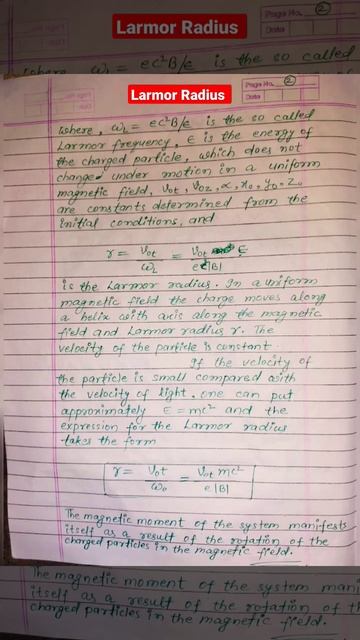 Larmor Radius
Page No. 2
Date
where, ω_L = ec²B/ε is the so called
Larmor Radius
Page No. 2
Date
where, ω_L = ec²B/ε is the so called
Larmor frequency, ε is the energy of
the charged particle, which does not
change under motion in a uniform
magnetic field, V0t, V0z, α, x0, y0, z0
are constants determined from the
initial conditions, and
r = V0t/ω_L = V0t ε/e|B|
is the Larmor radius. In a uniform
magnetic field the charge moves along
a helix with axis along the magnetic
field and Larmor radius r. The
velocity of the particle is constant.
If the velocity of
the particle is small compared with
the velocity of light, one can put
approximately ε = mc² and the
expression for the Larmor radius
takes the form
r = V0t/ω0 = V0t mc²/e|B|
The magnetic moment of the system manifests
itself as a result of the rotation of the
charged particles in the magnetic field.
The magnetic moment of the system mani
itself as a result of the rotation of th
charged particles in the magnetic field.